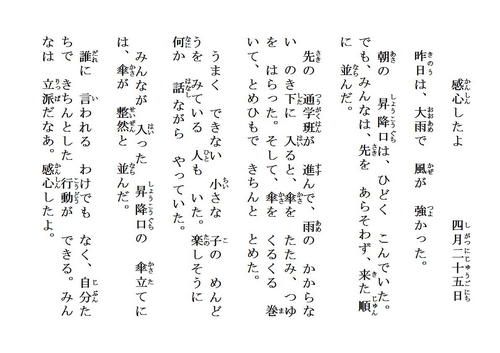 感心したよ　四月二十五日
昨日は、大雨で 風が 強かった。
朝の 昇降口は、ひどく こんでいた。
でも、みんなは、先を あらそわず、来た 順
に 並んだ。
先の 通学班が 進んで、雨の かからな
い のき下に 入ると、傘を たたみ、つゆ
を はらった。そして、傘を くるくる 巻
いて、とめひもで きちんと とめた。
うまく できない 小さな 子の めんど
うを みている 人も いた。楽しそうに
何か 話ながら やっていた。
みんなが 入った 昇降口の 傘立てに
は、傘が 整然と 並んだ。
誰に 言われる わけでも なく、自分た
ちで きちんとした 行動が できる。みん
なは 立派だなあ。感心したよ。